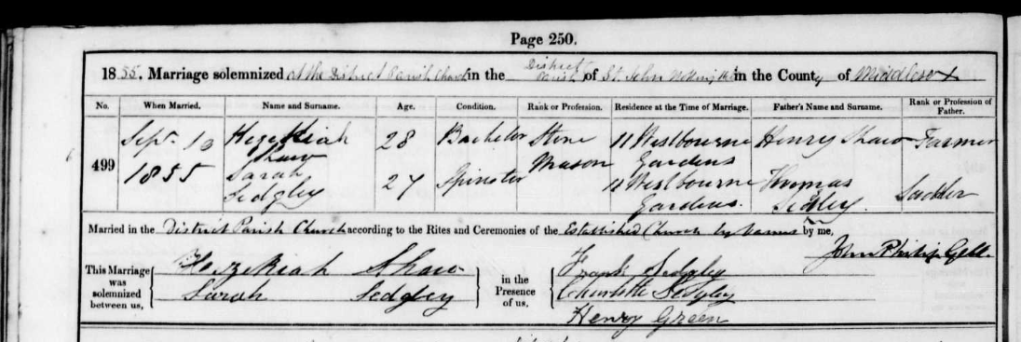 Page 250.
1855. Marriage solemnized at the District Parish Church in the District Parish of St. John Notting Hill in the County of Middlesex
No. When Married. Name and Surname. Age. Condition. Rank or Profession. Residence at the Time of Marriage. Father's Name and Surname. Rank or Profession of Father.
499 Sept. 10 1855 Hezekiah Shaw 28 Bachelor Stone Mason 11 Westbourne Gardens Henry Shaw Farmer
Sarah Sedgley 27 Spinster 11 Westbourne Gardens. Thomas Sedgley. Saddler
Married in the District Parish Church according to the Rites and Ceremonies of the Established Church by Banns by me,
John Philip Gell.
This Marriage was solemnized between us, Hezekiah Shaw in the Presence of us, Frank Sedgley
Sarah Sedgley Charlotte Sedgley
Henry Green